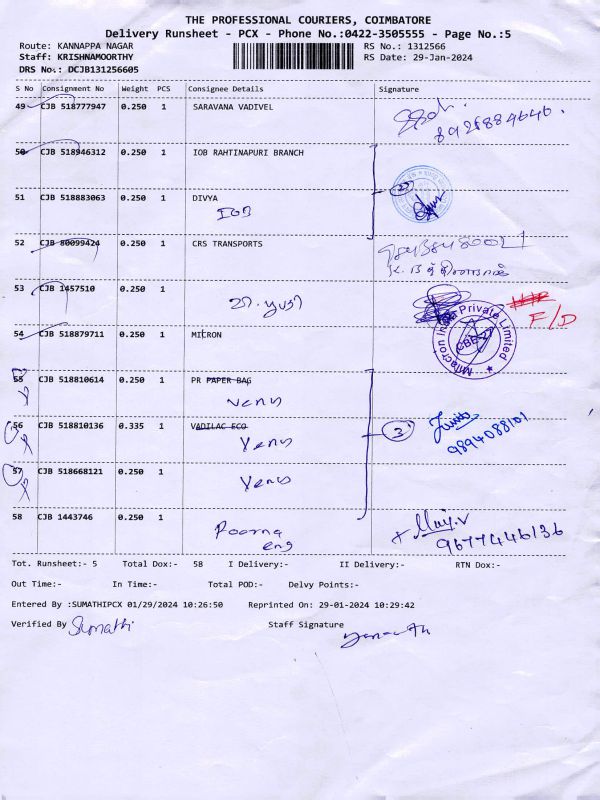 THE PROFESSIONAL COURIERS, COIMBATORE
Delivery Runsheet - PCX - Phone No.:0422-3505555 - Page No.:5
Route: KANNAPPA NAGAR RS No.: 1312566
Staff: KRISHNAMOORTHY RS Date: 29-Jan-2024
DRS No.: DCJB131256605
S No Consignment No Weight PCS Consignee Details Signature
49 CJB 518777947 0.250 1 SARAVANA VADIVEL
8925884646.
50 CJB 518946312 0.250 1 IOB RAHTINAPURI BRANCH
51 CJB 518883063 0.250 1 DIVYA
IOB
52 CJB 80099424 0.250 1 CRS TRANSPORTS
53 CJB 1457510 0.250 1
F/D
54 CJB 518879711 0.250 1 MICRON
Milacron India Private Limited
CBE-27
55 CJB 518810614 0.250 1 PR PAPER BAG
Venus
56 CJB 518810136 0.335 1 VADILAC ECO
Venus
3
9894088101
57 CJB 518668121 0.250 1
Venus
58 CJB 1443746 0.250 1
Poorna
eng
9677446136
Tot. Runsheet:- 5 Total Dox:- 58 I Delivery:- II Delivery:- RTN Dox:-
Out Time:- In Time:- Total POD:- Delvy Points:-
Entered By :SUMATHIPCX 01/29/2024 10:26:50 Reprinted On: 29-01-2024 10:29:42
Verified By Sumathi Staff Signature